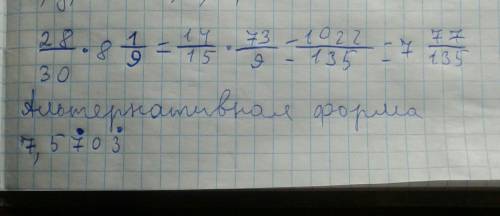 28/30 · 8 1/9 = 14/15 · 73/9 = 1022/135 = 7 77/135
Альтернативная форма
7,57̇03̇